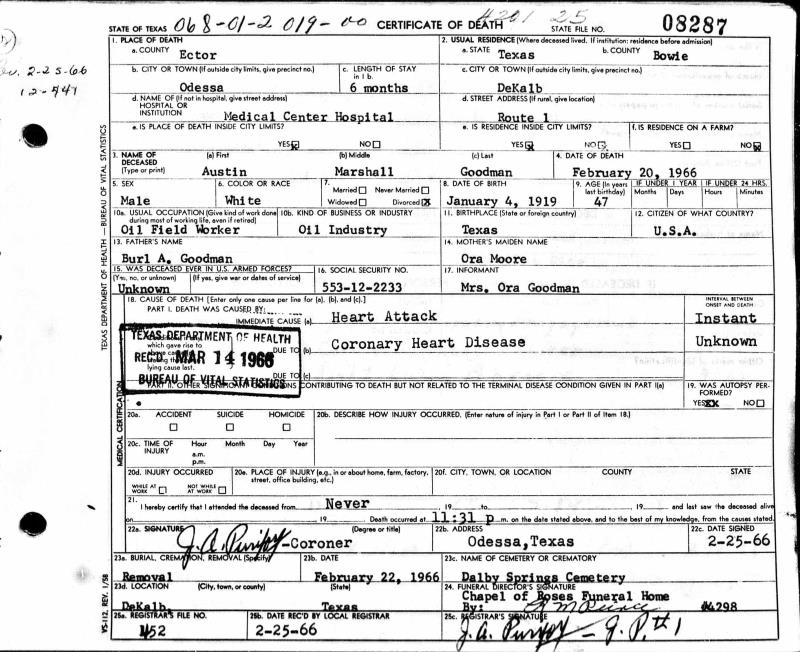 STATE OF TEXAS 068-01-2 019-00 CERTIFICATE OF DEATH #201 25 STATE FILE NO. 08287
1. PLACE OF DEATH
a. COUNTY Ector
2. USUAL RESIDENCE (Where deceased lived. If institution: residence before admission)
a. STATE Texas b. COUNTY Bowie
2-25-66
12-441
b. CITY OR TOWN (If outside city limits, give precinct no.) Odessa
c. LENGTH OF STAY in 1 b. 6 months
c. CITY OR TOWN (If outside city limits, give precinct no.) DeKalb
d. NAME OF (If not in hospital, give street address) HOSPITAL OR INSTITUTION Medical Center Hospital
d. STREET ADDRESS (If rural, give location) Route 1
e. IS PLACE OF DEATH INSIDE CITY LIMITS? YES NO
e. IS RESIDENCE INSIDE CITY LIMITS? YES NO
f. IS RESIDENCE ON A FARM? YES NO
3. NAME OF DECEASED (Type or print)
(a) First Austin
(b) Middle Marshall
(c) Last Goodman
4. DATE OF DEATH February 20, 1966
5. SEX Male
6. COLOR OR RACE White
7. Married Never Married Widowed Divorced X
8. DATE OF BIRTH January 4, 1919
9. AGE (In years last birthday) 47
IF UNDER 1 YEAR Months Days
IF UNDER 24 HRS. Hours Minutes
10a. USUAL OCCUPATION (Give kind of work done during most of working life, even if retired) Oil Field Worker
10b. KIND OF BUSINESS OR INDUSTRY Oil Industry
11. BIRTHPLACE (State or foreign country) Texas
12. CITIZEN OF WHAT COUNTRY? U.S.A.
13. FATHER'S NAME Burl A. Goodman
14. MOTHER'S MAIDEN NAME Ora Moore
15. WAS DECEASED EVER IN U.S. ARMED FORCES? (Yes, no, or unknown) (If yes, give war or dates of service) Unknown
16. SOCIAL SECURITY NO. 553-12-2233
17. INFORMANT Mrs. Ora Goodman
18. CAUSE OF DEATH [Enter only one cause per line for (a), (b), and (c).]
INTERVAL BETWEEN ONSET AND DEATH
PART I. DEATH WAS CAUSED BY:
IMMEDIATE CAUSE (a) Heart Attack Instant
which gave rise to
lying cause last.
DUE TO (b) Coronary Heart Disease Unknown
DUE TO (c)
TEXAS DEPARTMENT OF HEALTH
REC'D MAR 14 1966
BUREAU OF VITAL STATISTICS
PART II. OTHER SIGNIFICANT CONDITIONS CONTRIBUTING TO DEATH BUT NOT RELATED TO THE TERMINAL DISEASE CONDITION GIVEN IN PART I(a)
19. WAS AUTOPSY PERFORMED? YES XX NO
20a. ACCIDENT SUICIDE HOMICIDE
20b. DESCRIBE HOW INJURY OCCURRED. (Enter nature of injury in Part I or Part II of item 18.)
20c. TIME OF INJURY Hour Month Day Year
a.m.
p.m.
20d. INJURY OCCURRED
WHILE AT WORK NOT WHILE AT WORK
20e. PLACE OF INJURY (e.g., in or about home, farm, factory, street, office building, etc.)
20f. CITY, TOWN, OR LOCATION COUNTY STATE
21. I hereby certify that I attended the deceased from Never 19 to 19 and last saw the deceased alive
on 19 Death occurred at 11:31 p m. on the date stated above, and to the best of my knowledge, from the causes stated.
22a. SIGNATURE (Degree or title) J.A. Purifoy-Coroner
22b. ADDRESS Odessa, Texas
22c. DATE SIGNED 2-25-66
23a. BURIAL, CREMATION, REMOVAL (Specify) Removal
23b. DATE February 22, 1966
23c. NAME OF CEMETERY OR CREMATORY Dalby Springs Cemetery
23d. LOCATION (City, town, or county) (State) DeKalb Texas
24. FUNERAL DIRECTOR'S SIGNATURE
Chapel of Roses Funeral Home
By: #4298
25a. REGISTRAR'S FILE NO. 452
25b. DATE REC'D BY LOCAL REGISTRAR 2-25-66
25c. REGISTRAR'S SIGNATURE J.A. Purifoy - J.P. #1
TEXAS DEPARTMENT OF HEALTH—BUREAU OF VITAL STATISTICS
MEDICAL CERTIFICATION
VS-112, REV. 1/58